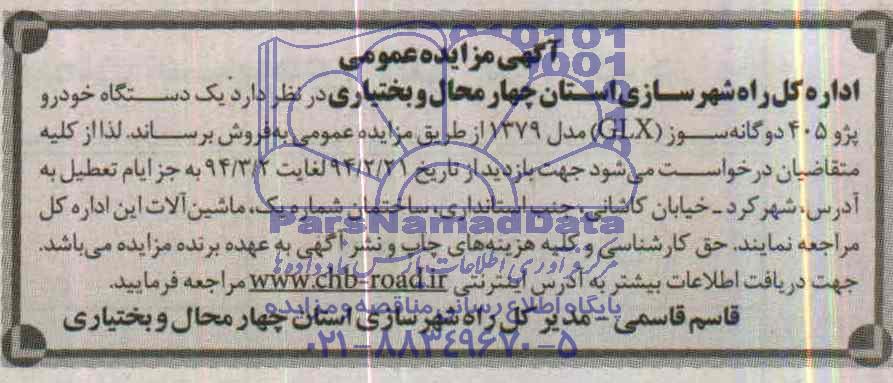 آگهی مزایده عمومی
اداره کل راه شهرسازی استان چهارمحال و بختیاری در نظر دارد یک دستگاه خودرو
پژو ۴۰۵ دوگانه سوز (GLX) مدل ۱۳۷۹ از طریق مزایده عمومی به فروش برساند. لذا از کلیه
متقاضیان درخواست می شود جهت بازدید از تاریخ ۹۴/۲/۲۱ لغایت ۹۴/۳/۲ به جز ایام تعطیل به
آدرس، شهرکرد ـ خیابان کاشانی، جنب استانداری، ساختمان شماره یک، ماشین آلات این اداره کل
مراجعه نمایند. حق کارشناسی و کلیه هزینه های چاپ و نشر آگهی به عهده برنده مزایده می باشد.
جهت دریافت اطلاعات بیشتر به آدرس اینترنتی www.chb-road.ir مراجعه فرمایید.
قاسم قاسمی - مدیر کل راه شهرسازی استان چهارمحال و بختیاری
ParsNamadData
مرکز فرآوری اطلاعات پارس نماد داده ها
پایگاه اطلاع رسانی مناقصه و مزایده
۰۲۱-۸۸۳۴۹۶۷۰-۵